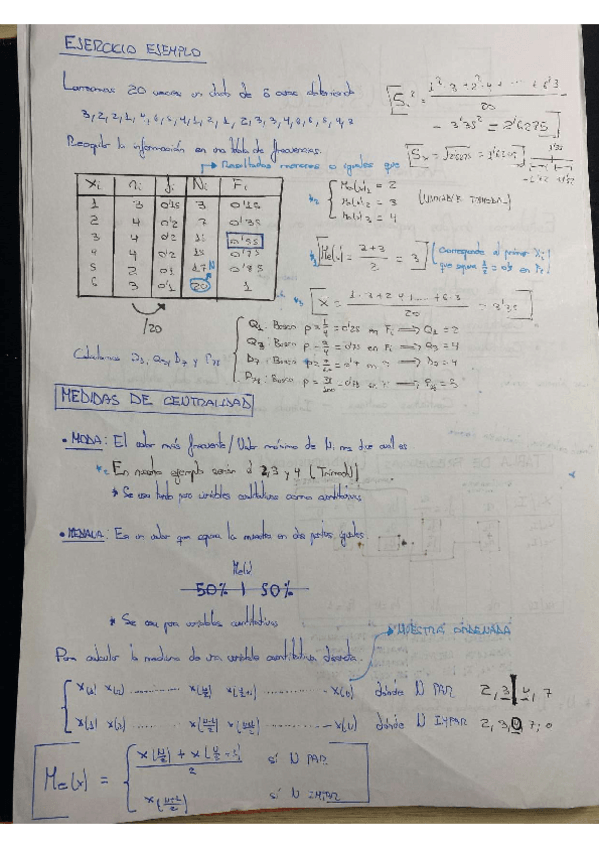 EJERCICIO EJEMPLO
Lanzamos 20 veces un dado de 6 caras obteniendo
3, 2, 2, 1, 4, 6, 5, 4, 1, 2, 1, 2, 3, 3, 4, 6, 6, 5, 4, 3
Recopilo la información en una tabla de frecuencias.
→ Resultados menores o iguales que
Xi ni fi Ni Fi
1 3 0'15 3 0'15
2 4 0'2 7 0'35
3 4 0'2 11 0'55
4 4 0'2 15 0'75
5 2 0'1 17 0'85
6 3 0'1 20 1
/20
S²x = 1²·3 + 2²·4 + ... + 6²·3 / 20
- 3'35² = 2'6275
Sx = √2'6275 = 1'6209
Mo(x)1 = 2
Mo(x)2 = 3
Mo(x)3 = 4
Me(x) = 3+3 / 2 = 3
(Corresponde al primer Xi
que supera 1/2 = 0'5 en Fi)
x = 1·3 + 2·4 + ... + 6·3 / 20 = 3'35
Q1: Busco p = 1/4 = 0'25 en Fi ⟹ Q1 = 2
Q3: Busco p = 3/4 = 0'75 en Fi ⟹ Q3 = 4
D7: Busco p = 7/10 = 0'7 en Fi ⟹ D7 = 4
P78: Busco p = 78/100 = 0'78 en Fi ⟹ P78 = 5
MEDIDAS DE CENTRALIDAD
• MODA: El valor más frecuente / Valor máximo de ni, nos dice cual es
En nuestro ejemplo serán el 2, 3 y 4 (Trimodal)
* Se usa tanto para variables cualitativas como cuantitativas
• MEDIANA: Es un valor que separa la muestra en dos partes iguales.
Me(x)
50% | 50%
* Se usa para variables cuantitativas
→ MUESTRA ORDENADA
Para calcular la mediana de una variable cuantitativa discreta
X(1) X(2) ............ X(N/2) X(N/2+1) ............ X(N) dónde N PAR 2, 3 | 4, 7
X(1) X(2) ............ X(N) dónde N IMPAR 2, 3, 0, 7, 0
Me(x) = X(N/2) + X(N/2+1) / 2 si N PAR
X(N+1/2) si N IMPAR